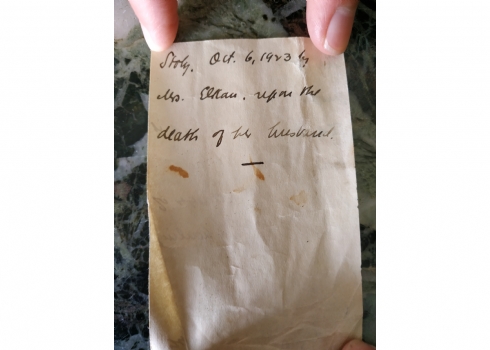 Oct. 6, 1923 by
Mrs. Elkan. upon the
death of her husband.